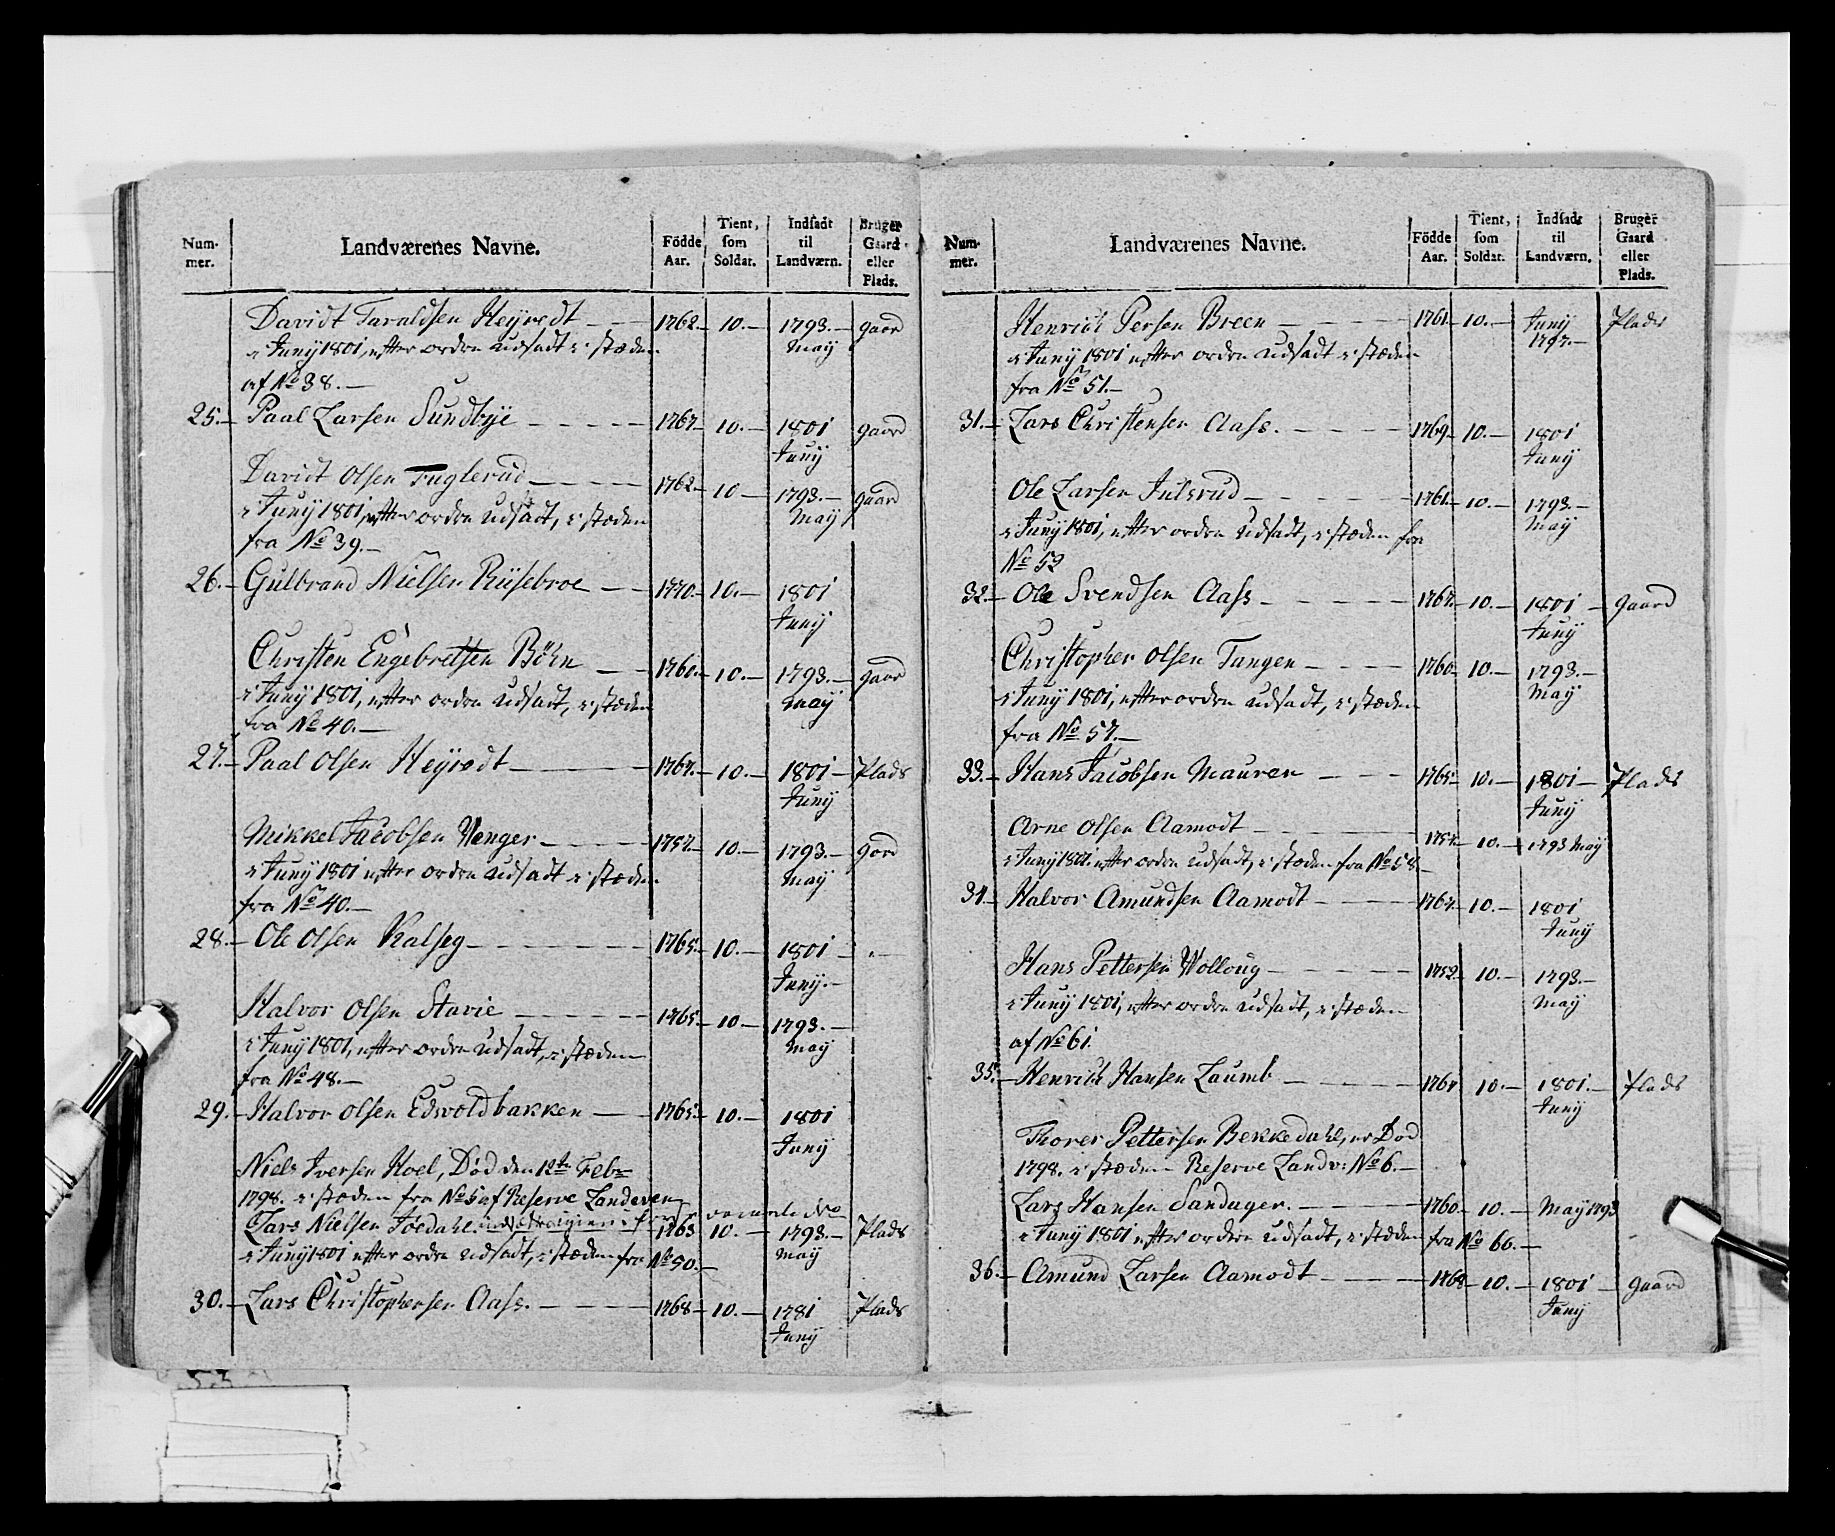 Num-
mer.
Landværenes Navne.
Födde
Aar.
Tient,
som
Soldat.
Indsadt
til
Landværn.
Bruger
Gaard
eller
Plads.
Davidt Taraldsen Heyredt 1762. 10. 1793. gaard
May
Juny 1801, efter ordre udsadt, i stæden
af No 38.
25. Paal Larsen Sundbye 1767 10. 1801 gaard
Juny
Davidt Olsen Fuglerud 1762. 10 1793. gaard
May
Juny 1801, efter ordre udsadt, i stæden
fra No 39.
26. Gulbrand Nielsen Riisebroe 1770. 10. 1801
Juny
Christen Engebretsen Böhn 1760. 10. 1793. gaard
May
Juny 1801, efter ordre udsadt, i stæden
fra No 40.
27. Paal Olsen Heyredt 1767. 10. 1801 Plads
Juny
Mikkel Jacobsen Wenger 1757. 10. 1793. gord
May
Juny 1801 efter ordre udsadt i stæden
fra No 40.
28. Ole Olsen Kalseg 1765. 10. 1801
Juny.
Halvor Olsen Stavie 1765. 10 1793.
May
Juny 1801, efter ordre udsadt, i stæden
fra No 48.
29. Halvor Olsen Edsvoldbakken 1765. 10. 1801
Juny
Niels Iversen Hoel, Död den 12te Febr
1798. i stæden fra No 5 af Reserve Landeven
Lars Nielsen 1763 10. 1793. Plads
May
Juny 1801 efter ordre udsadt, i stæden fra No 50.
30. Lars Christophersen Aass. 1768 10. 1781 Plads
Juny
Num-
mer.
Landværenes Navne.
Födde
Aar.
Tient,
som
Soldat.
Indsadt
til
Landværn.
Bruger
Gaard
eller
Plads.
Henrich Persen Breen 1761. 10. Juny Plads
1797.
Juny 1801 efter ordre udsadt i stæden
fra No 51.
31. Lars Christensen Aass. 1769 10. 1801
Juny
Ole Larsen Julsrud 1761. 10. 1793.
May
Juny 1801, efter ordre udsadt, i stæden fra
No 53
32. Ole Svendsen Aass 1767. 10. 1801 gaard
Juny
Christopher Olsen Tangen 1760 10. 1793.
May
Juny 1801, efter ordre udsadt, i stæden
fra No 57.
33. Hans Jacobsen Mauren 1765 10. 1801 Plads
Juny
Arne Olsen Aamodt 1757. 10. 1793 May
Juny 1801 efter ordre udsadt, i stæden fra No 58.
34. Halvor Amundsen Aamodt 1767. 10. 1801
Juny
Hans Pettersen Wolloug 1752 10. 1793.
May
Juny 1801, efter ordre udsadt, i stæden
af No 61.
35. Henrich Hansen Laumb 1767 10. 1801. Plads
Juny
Thorer Pettersen Bekkedahl, er Död
1798. i stæden Reserve Landv: No 6.
Lars Hansen Sandager. 1760. 10. May 1793
Juny 1801 efter ordre udsadt, i stæden fra No 60.
36. Amund Larsen Aamodt 1768 10. 1801 gaard
Juny